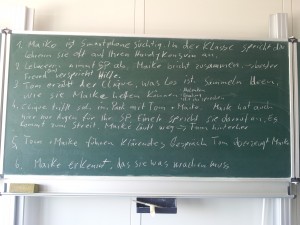 1. Maike ist Smartphonesüchtig. In der Klasse spricht die
Lehrerin sie oft auf Ihren Handykonsum an.
2. Lehrerin nimmt SP ab, Maike bricht zusammen → bester
Freund Tom verspricht Hilfe.
3. Tom erzählt der Clique, was los ist. Sammeln Ideen,
wie sie Maike helfen können
4. Clique trifft sich im Park mit Tom + Maike. Maik hat auch
hier nur Augen für ihr SP. Eineln spricht sie darauf an. Es
kommt zum Streit. Maike läuft weg → Tom hinterher
5. Tom + Maike führen klärendes Gespräch. Tom überzeugt Maike
6. Maike erkennt, das sie was machen muss